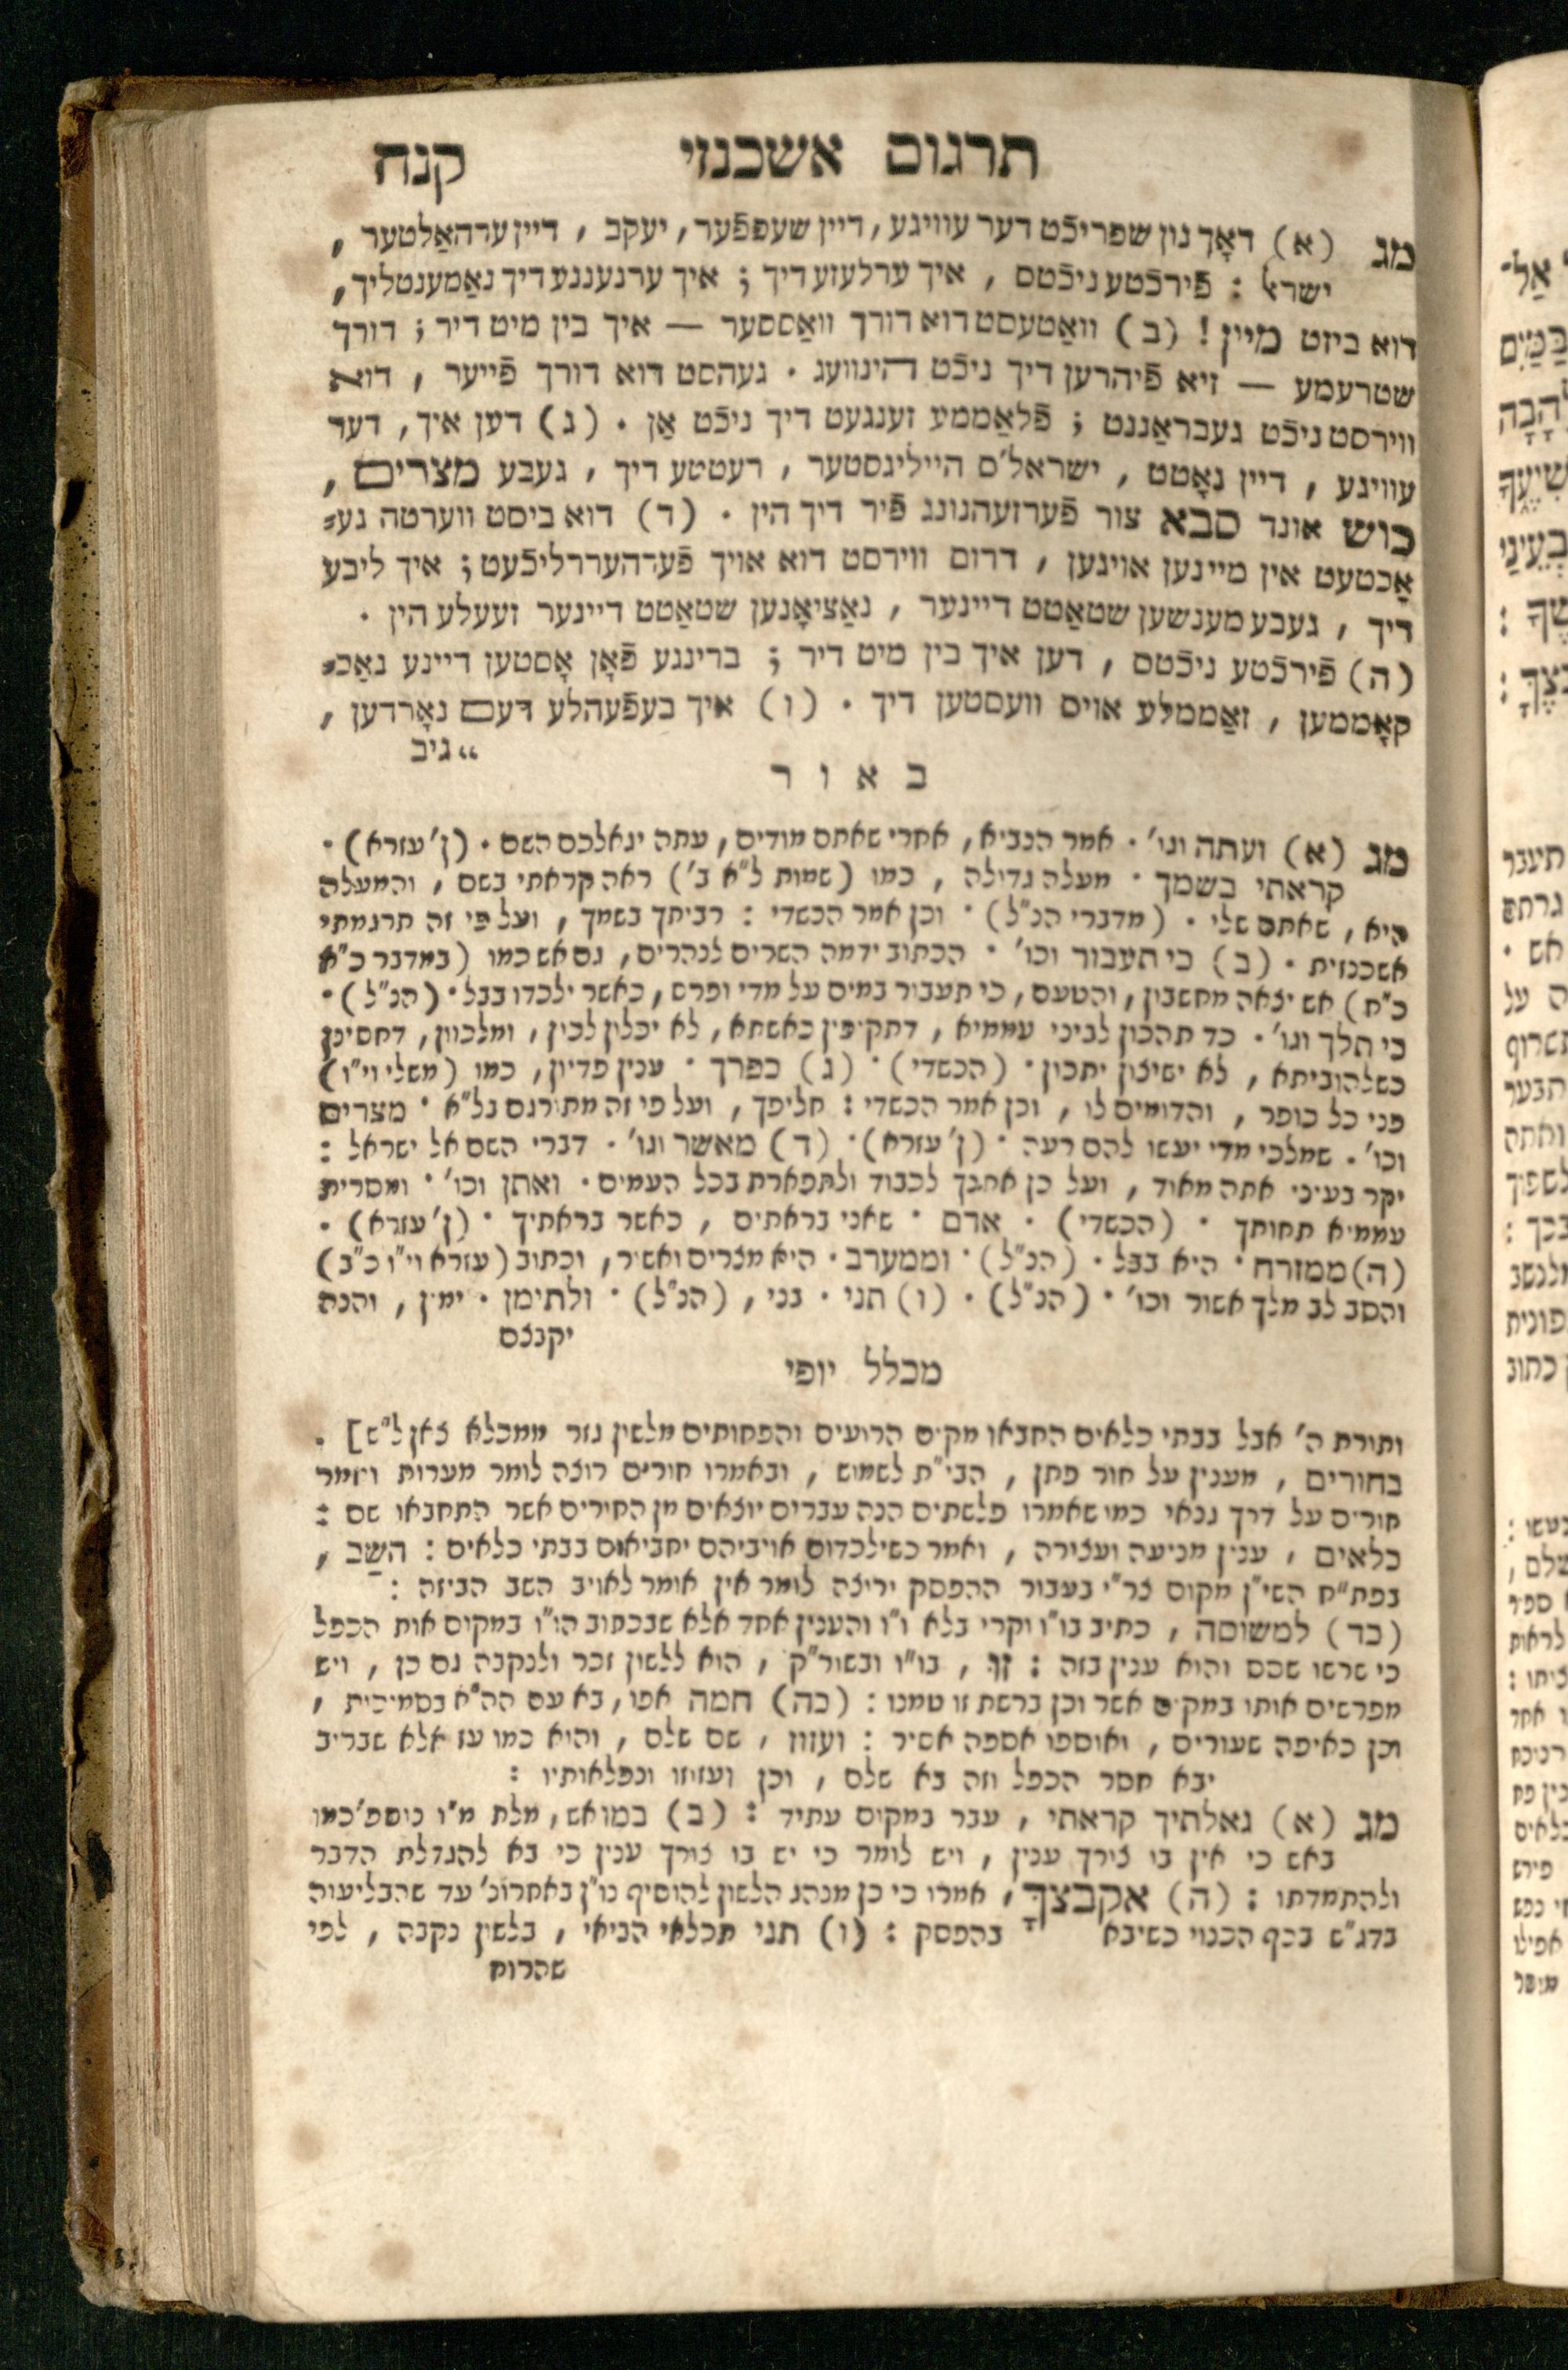 תרגום אשכנזי קנח
מג (א) דאָך נון שפריכֿט דער עוויגע, דיין שעפפֿער, יעקב, דיין ערהאַלטער,
ישראל: פֿירכֿטע ניכֿטס, איך ערלעזע דיך; איך ערנעננע דיך נאַמענטליך,
דוא ביזט מיין! (ב) וואַטעסט דוא דורך וואַססער — איך בין מיט דיר; דורך
שטרעמע — זיא פֿיהרען דיך ניכֿט דהינוועג. געהסט דוא דורך פֿייער, דוא
ווירסט ניכֿט געבראַננט; פֿלאַממע זענגעט דיך ניכֿט אַן. (ג) דען איך, דער
עוויגע, דיין גאָטט, ישראל'ס הייליגסטער, רעטטע דיך, געבע מצרים,
כוש אונד סבא צור פֿערזעהנונג פֿיר דיך הין. (ד) דוא ביסט ווערטה גע⸗
אָכטעט אין מיינען אויגען, דרום ווירסט דוא אויך פֿערהעררליכֿעט; איך ליבע
דיך, געבע מענשען שטאַטט דיינער, נאַציאָנען שטאַטט דיינער זעעלע הין.
(ה) פֿירכֿטע ניכֿטס, דען איך בין מיט דיר; ברינגע פֿאָן אָסטען דיינע נאַכ⸗
קאָממען, זאַממלע אויס וועסטען דיך. (ו) איך בעפֿעהלע דעם נאָרדען,
„גיב
באור
מג (א) ועתה וגו'. אמר הנביא, אחרי שאתם מודים, עתה יגאלכם השם. (ן' עזרא).
קראתי בשמך. מעלה גדולה, כמו (שמות ל"א ב') ראה קראתי בשם, והמעלה
היא, שאתם שלי. (מדברי הנ"ל). וכן אמר הכשדי: רביתך בשמך, ועל פי זה תרגמתי
אשכנזית. (ב) כי תעבור וכו'. הכתוב ידמה השרים לנהרים, גם אש כמו (במדבר כ"א
כ"ח) אש יצאה מחשבון, והטעם, כי תעבור במים על מדי ופרס, כאשר ילכדו בבל. (הנ"ל).
כי תלך וגו'. כד תהכון לביני עממיא, דתקיפין כאשתא, לא יכלון לכון, ומלכוון, דחסינן
כשלהוביתא, לא ישיצון יתכון. (הכשדי). (ג) כפרך. ענין פדיון, כמו (משלי וי"ו)
פני כל כופר, והדומים לו, וכן אמר הכשדי: חליפך, ועל פי זה מתורגם בל"א. מצרים
וכו'. שמלכי מדי יעשו להם רעה. (ן' עזרא). (ד) מאשר וגו'. דברי השם אל ישראל:
יקר בעיני אתה מאוד, ועל כן אתנך לכבוד ולתפארת בכל העמים. ואתן וכו'. ומסרית
עממיא תחותך. (הכשדי). אדם. שאני בראתים, כאשר בראתיך. (ן' עזרא).
(ה) ממזרח. היא בבל. (הנ"ל). וממערב. היא מצרים ואשור, וכתוב (עזרא וי"ו כ"ב)
והסב לב מלך אשור וכו'. (הנ"ל). (ו) תני. בני, (הנ"ל). ולתימן. ימין, והנה
יקבצם
מכלל יופי
ותורת ה' אבל בבתי כלאים החבאו מקום הרועים והפחותים מלשון גזר ממכלא צאן ל"ש].
בחורים, מענין על חור פתן, הבי"ת לשמוש, ובאמרו חורים רוצה לומר מערות ויאמר
חורים על דרך גנאי כמו שאמרו פלשתים הנה עברים יוצאים מן החורים אשר התחבאו שם:
כלאים, ענין מניעה ועצירה, ואמר כשילכדום אויביהם יחביאום בבתי כלאים: השַב,
בפת"ח השי"ן מקום צר"י בעבור ההפסק ירצה לומר אין אומר לאויב השב הביזה:
(כד) למשוסה, כתיב בו"ו וקרי בלא ו"ו והענין אחד אלא שבכתוב הו"ו במקום אות הכפל
כי שרשו שסס והוא ענין בזה: זוּ, בו"ו ובשור"ק, הוא ללשון זכר ולנקבה גם כן, ויש
מפרשים אותו במקום אשר וכן ברשת זו טמנו: (כה) חמה אפו, בא עם הה"א בסמיכות,
וכן כאיפה שעורים, ואוספו אספה אסיר: ועזוז, שם שלם, והוא כמו עז אלא שברוב
יבא חסר הכפל וזה בא שלם, וכן ועזוזו ונפלאותיו:
מג (א) גאלתיך קראתי, עבר במקום עתיד: (ב) במו אש, מלת מ"ו נוספ' כמו
באש כי אין בו צורך ענין, ויש לומר כי יש בו צורך ענין כי בא להגדלת הדבר
ולהתמדתו: (ה) אקבצךָ, אמרו כי כן מנהג הלשון להוסיף נו"ן באחרונ' עד שהבליעוה
בדג"ש בכף הכנוי כשיבא בהפסק: (ו) תני תכלאי הביאי, בלשון נקבה, לפי
שהרוח